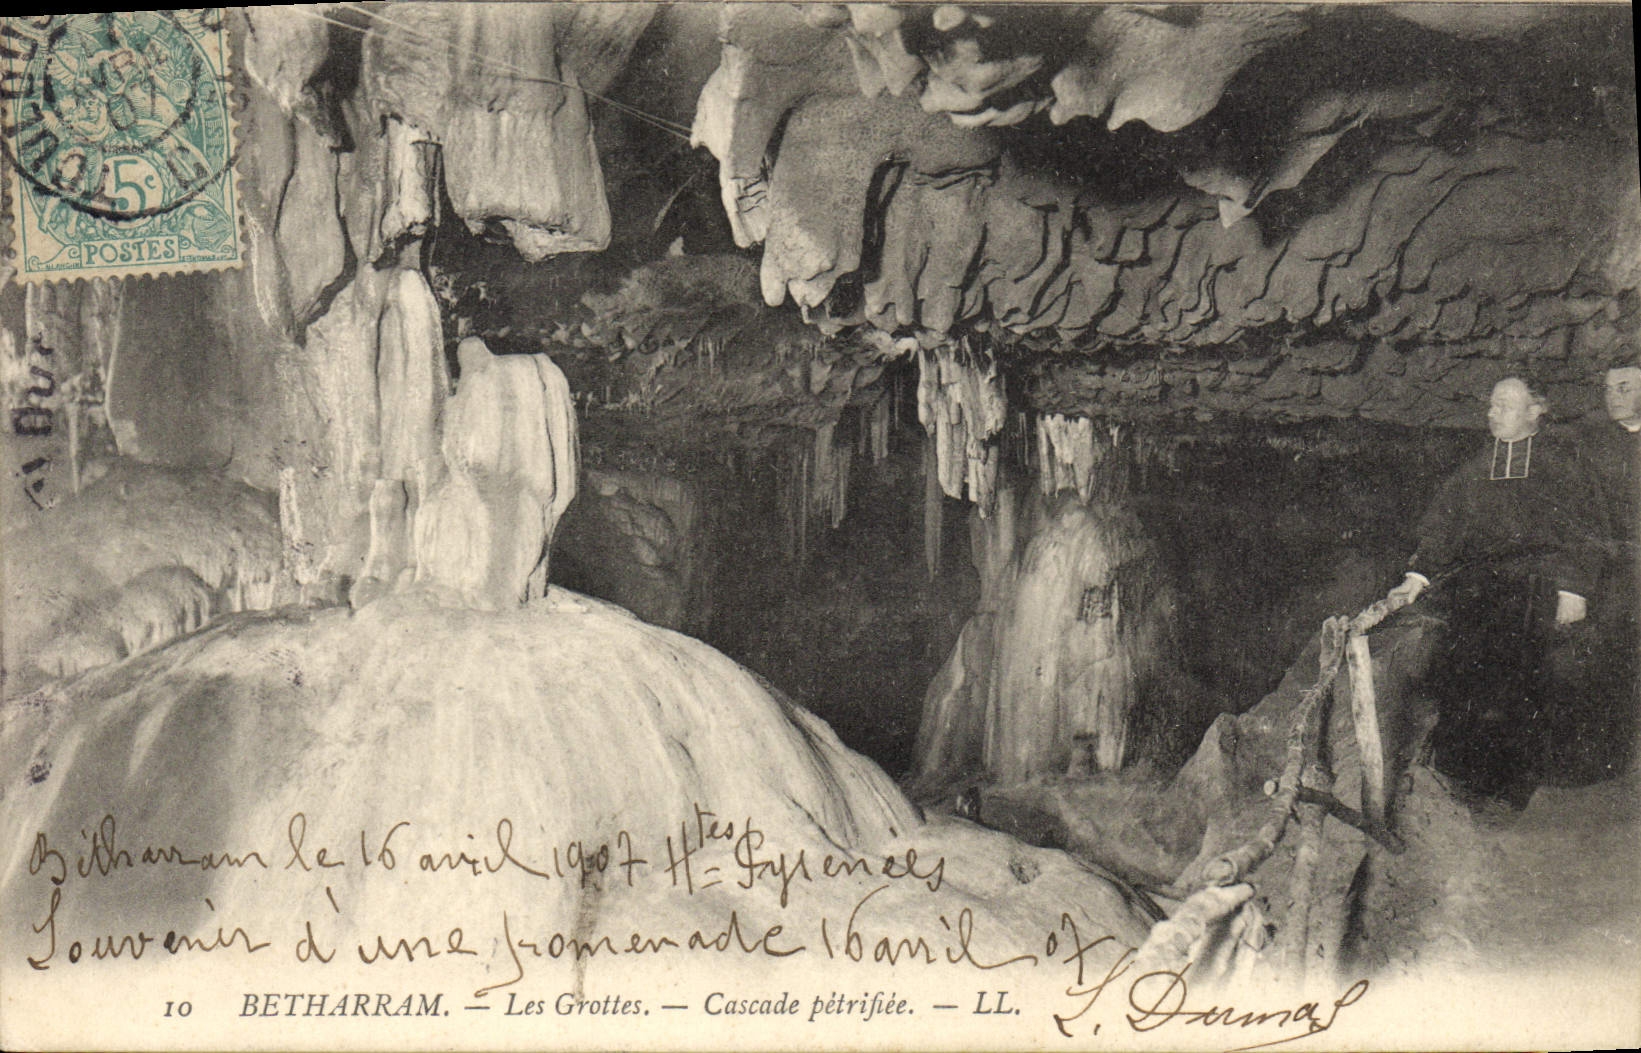 TOULOUSE
AVRIL
07
5c
POSTES
Bétharram le 16 avril 1907 Htes = Pyrénées
Souvenir d'une promenade 16 avril 07
10 BETHARRAM. — Les Grottes. — Cascade pétrifiée. — LL.